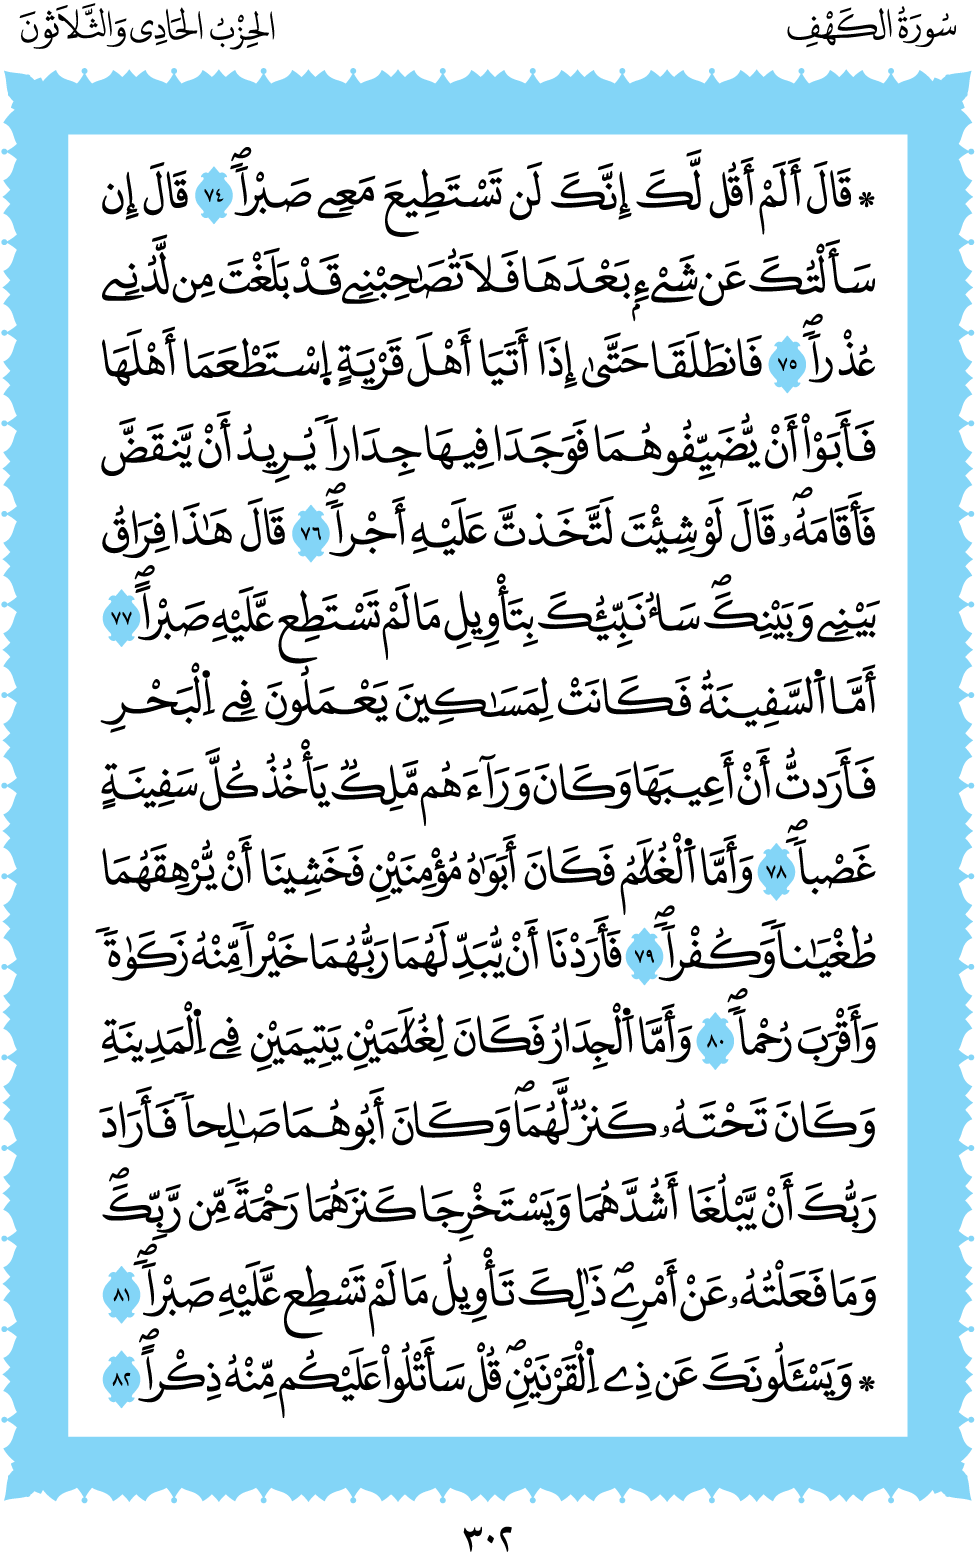 سُورَةُ الكَهْفِ
الحِزْبُ الحَادِى وَالثَّلَاثُونَ
* قَالَ أَلَمْ أَقُل لَّكَ إِنَّكَ لَن تَسْتَطِيعَ مَعِے صَبْراࣰۖ ٧٤ قَالَ إِن
سَأَلْتُكَ عَن شَےْءِۢ بَعْدَهَا فَلَا تُصَٰحِبْنِے قَدْ بَلَغْتَ مِن لَّدُنِے
عُذْراࣰۖ ٧٥ فَانطَلَقَا حَتَّىٰ إِذَا أَتَيَا أَهْلَ قَرْيَةٍ اِ۪سْتَطْعَمَا أَهْلَهَا
فَأَبَوْاْ أَنْ يُّضَيِّفُوهُمَا فَوَجَدَا فِيهَا جِدَاراࣰ يُرِيدُ أَنْ يَّنقَضَّ
فَأَقَامَهُۥۖ قَالَ لَوْ شِئْتَ لَتَّخَذتَّ عَلَيْهِ أَجْراࣰۖ ٧٦ قَالَ هَٰذَا فِرَاقُ
بَيْنِے وَبَيْنِكَۖ سَأُنَبِّئُكَ بِتَأْوِيلِ مَا لَمْ تَسْتَطِع عَّلَيْهِ صَبْراًۖ ٧٧
أَمَّا اَ۬لسَّفِينَةُ فَكَانَتْ لِمَسَٰكِينَ يَعْمَلُونَ فِے اِ۬لْبَحْرِ
فَأَرَدتُّ أَنْ أَعِيبَهَا وَكَانَ وَرَآءَهُم مَّلِكࣱ يَأْخُذُ كُلَّ سَفِينَةٍ
غَصْباࣰۖ ٧٨ وَأَمَّا اَ۬لْغُلَٰمُ فَكَانَ أَبَوَٰهُ مُؤْمِنَيْنِ فَخَشِينَا أَنْ يُّرْهِقَهُمَا
طُغْيَٰناࣰ وَكُفْراࣰۖ ٧٩ فَأَرَدْنَا أَنْ يُّبَدِّلَهُمَا رَبُّهُمَا خَيْراࣰ مِّنْهُ زَكَوٰةࣰ
وَأَقْرَبَ رُحْماࣰۖ ٨٠ وَأَمَّا اَ۬لْجِدَارُ فَكَانَ لِغُلَٰمَيْنِ يَتِيمَيْنِ فِے اِ۬لْمَدِينَةِ
وَكَانَ تَحْتَهُۥ كَنزࣱ لَّهُمَاۖ وَكَانَ أَبُوهُمَا صَٰلِحاࣰ فَأَرَادَ
رَبُّكَ أَنْ يَّبْلُغَا أَشُدَّهُمَا وَيَسْتَخْرِجَا كَنزَهُمَا رَحْمَةࣰ مِّن رَّبِّكَۖ
وَمَا فَعَلْتُهُۥ عَنْ أَمْرِےۖ ذَٰلِكَ تَأْوِيلُ مَا لَمْ تَسْطِع عَّلَيْهِ صَبْراࣰۖ ٨١
* وَيَسْـَٔلُونَكَ عَن ذِے اِ۬لْقَرْنَيْنِۖ قُلْ سَأَتْلُواْ عَلَيْكُم مِّنْهُ ذِكْراًۖ ٨٢
٣٠٢